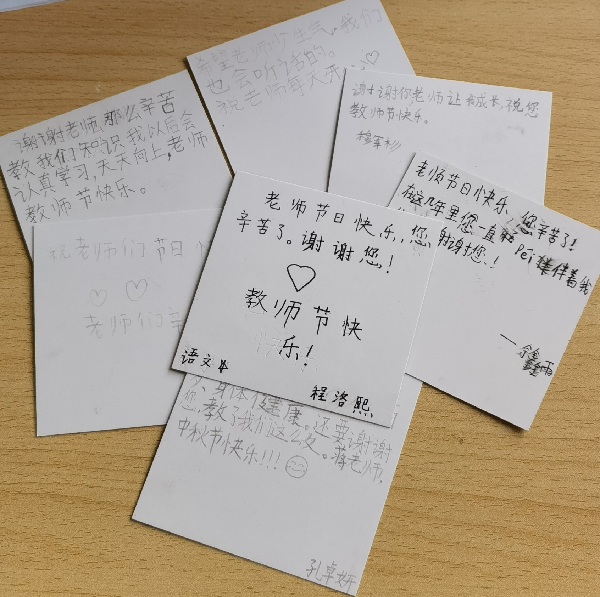 希望老师少生气,我们
也会听话的。
祝老师每天开
谢谢老师,那么辛苦
教我们知识我以后会
认真学习,天天向上,老师
教师节快乐。
谢谢你老师让我成长,祝您
教师节快乐。
老师节日快乐,您辛苦了!
在这几年里您一直 Pei 伴着我
谢谢您!
祝老师们节日
老师们辛
老师节日快乐,您
辛苦了。谢谢您!
教师节快
乐!
语文
程洛熙
身体健康。还要谢谢
您,教了我们这么久。蒋老师,
中秋节快乐!!!
孔卓妍